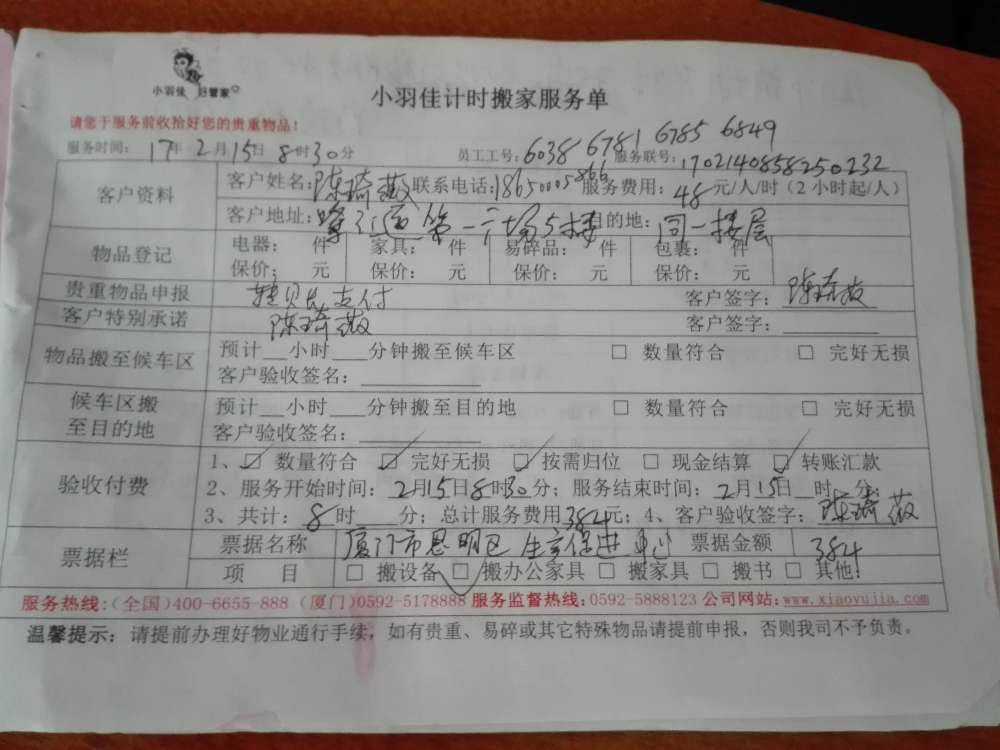 小羽佳 好管家
小羽佳计时搬家服务单
请您于服务前收拾好您的贵重物品!
服务时间: 17年2月15日8时30分 员工工号: 6038 6781 6785 6849 服务联号: 1702140858250232
客户资料
客户姓名: 陈琦薇 联系电话: 18650005866 服务费用: 48元/人/时(2小时起/人)
客户地址: 第一市场5楼 目的地: 同一楼层
物品登记
电器: 件 家具: 件 易碎品: 件 包裹: 件
保价: 元 保价: 元 保价: 元 保价: 元
贵重物品申报 支付 客户签字: 陈琦薇
客户特别承诺 陈琦薇 客户签字:
物品搬至候车区
预计__小时___分钟搬至候车区 □ 数量符合 □ 完好无损
客户验收签名:
候车区搬至目的地
预计__小时___分钟搬至目的地 □ 数量符合 □ 完好无损
客户验收签名:
验收付费
1、☑ 数量符合 ☑ 完好无损 ☑ 按需归位 □ 现金结算 ☑ 转账汇款
2、服务开始时间: 2月15日8时30分; 服务结束时间: 2月15日__时__分;
3、共计: 8时___分; 总计服务费用384元; 4、客户验收签字: 陈琦薇
票据栏
票据名称 厦门市思明区生育保进中心 票据金额 384
项 目 □ 搬设备 ☑ 搬办公家具 □ 搬家具 □ 搬书 □ 其他:
服务热线:(全国)400-6655-888 (厦门)0592-5178888 服务监督热线:0592-5888123 公司网站:www.xiaoyujia.com
温馨提示: 请提前办理好物业通行手续，如有贵重、易碎或其它特殊物品请提前申报，否则我司不予负责。